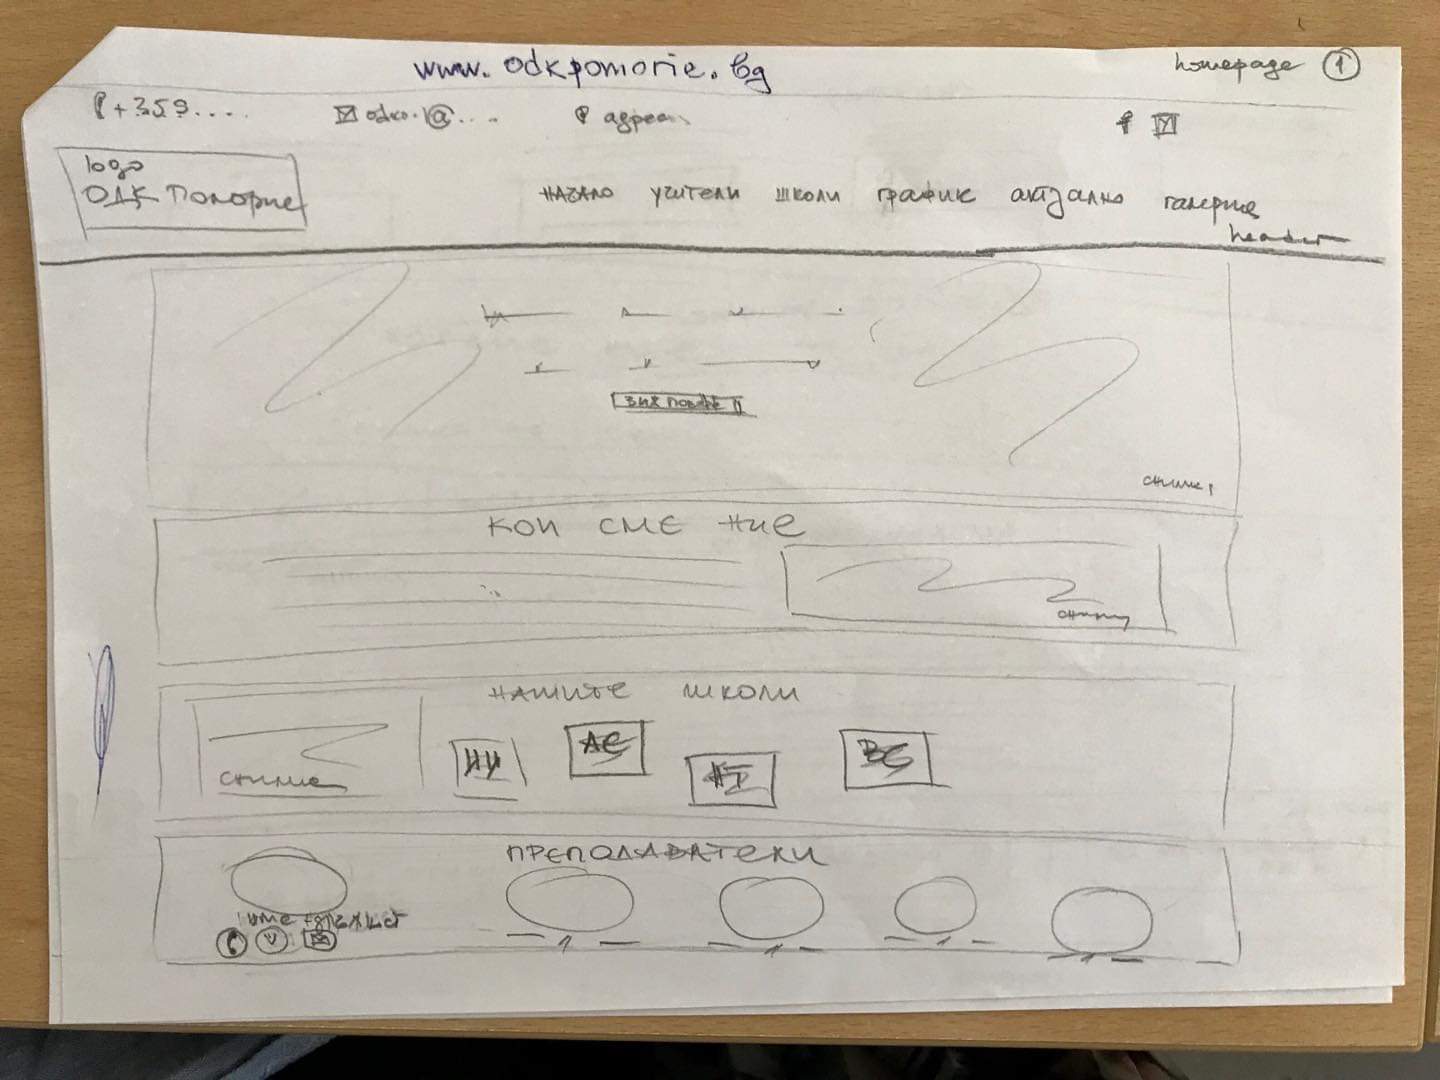 www.odkpomorie.bg
homepage 1
+359....
odko.1@....
адрес..
logo
ОДК Поморие
НАЧАЛО учители школи график актуално галерия
header
ВИЖ ПОВЕЧЕ
снимк
КОИ СМЕ НИЕ
НАШИТЕ ШКОЛИ
снимка
НИ
АЕ
ПРЕПОДАВАТЕЛИ
име